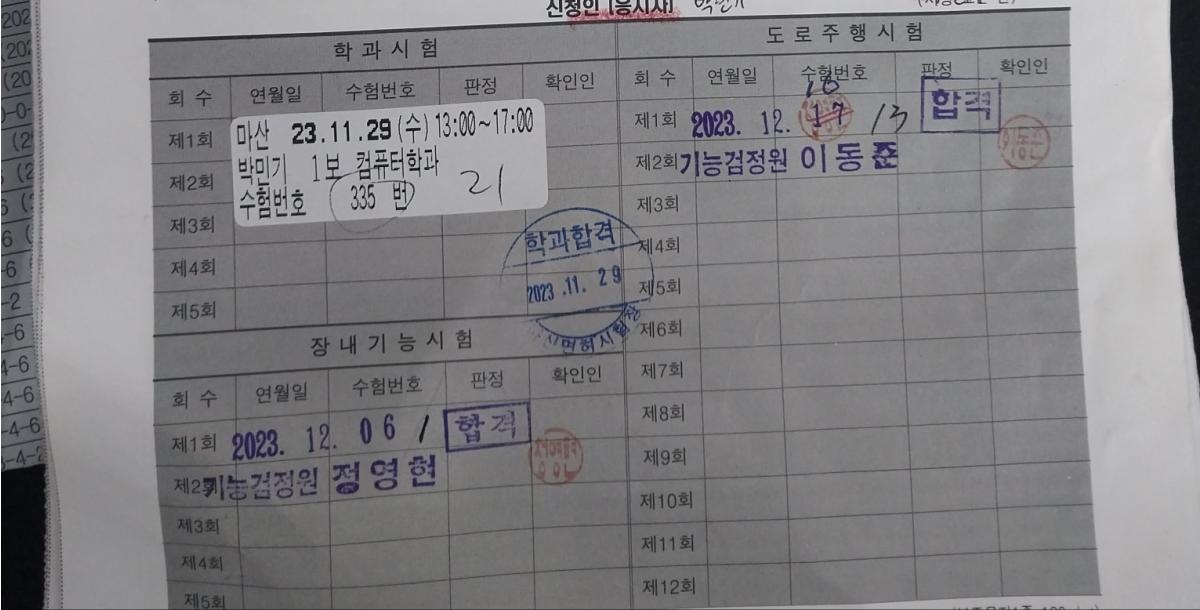 신청인 [응시자] 박민기
학 과 시 험
회 수 연월일 수험번호 판정 확인인
제1회
제2회
제3회
제4회
제5회
마산 23.11.29 (수) 13:00~17:00
박민기 1보 컴퓨터학과
수험번호 335 번 21
학과합격
2023.11.29
면허시험장
장 내 기 능 시 험
회 수 연월일 수험번호 판정 확인인
제1회 2023. 12. 06 / 1 합격
제2회 기능검정원 정영현
제3회
제4회
제5회
도 로 주 행 시 험
회 수 연월일 수험번호 판정 확인인
제1회 2023. 12. 17 18 /3 합격
제2회 기능검정원 이동준 이동준
제3회
제4회
제5회
제6회
제7회
제8회
제9회
제10회
제11회
제12회